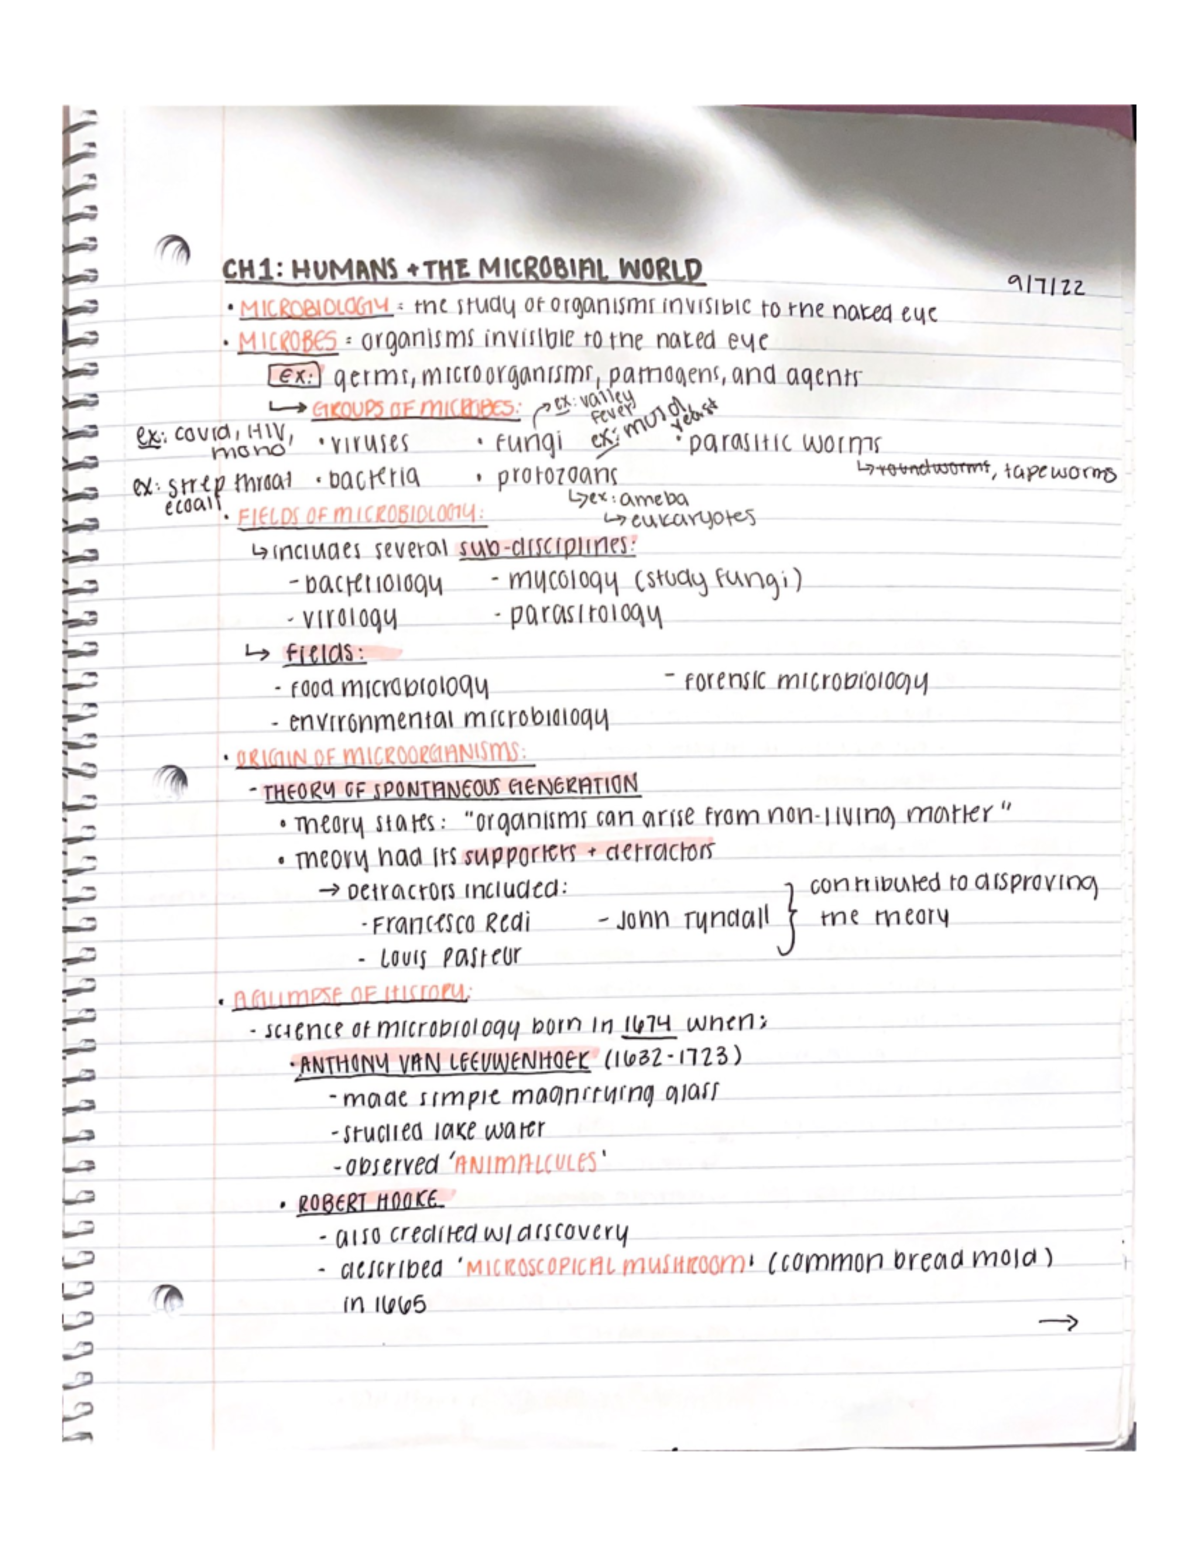 CH1: HUMANS + THE MICROBIAL WORLD
9/7/22
• MICROBIOLOGY = the study of organisms invisible to the naked eye
• MICROBES = organisms invisible to the naked eye
ex: germs, microorganisms, pathogens, and agents
↳ GROUPS OF MICROBES:
ex: valley fever
ex: mold, yeast
ex: covid, HIV, mono
• viruses • fungi • parasitic worms
↳ roundworms, tapeworms
ex: strep throat ecoali
• bacteria • protozoans
↳ ex: ameba
↳ eukaryotes
• FIELDS OF MICROBIOLOGY:
↳ includes several sub-disciplines:
- bacteriology - mycology (study fungi)
- virology - parasitology
↳ fields:
- food microbiology - forensic microbiology
- environmental microbiology
• ORIGIN OF MICROORGANISMS:
- THEORY OF SPONTANEOUS GENERATION
• theory states: "organisms can arise from non-living matter"
• theory had its supporters + detractors
→ Detractors included:
- Francesco Redi - John Tyndall } contributed to disproving the theory
- Louis Pasteur
• A GLIMPSE OF HISTORY:
- science of microbiology born in 1674 when:
• ANTHONY VAN LEEUWENHOEK (1632-1723)
- made simple magnifying glass
- studied lake water
- observed 'ANIMALCULES'
• ROBERT HOOKE
- also credited w/ discovery
- described 'MICROSCOPICAL MUSHROOM' (common bread mold)
in 1665
→